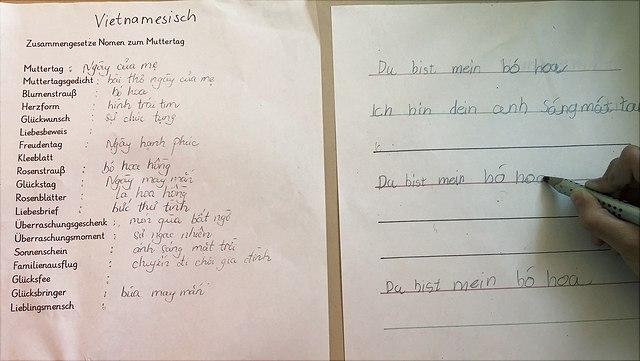 Vietnamesisch
Zusammengesetze Nomen zum Muttertag
Muttertag : Ngày của mẹ
Muttertagsgedicht : bài thơ ngày của mẹ
Blumenstrauß : bó hoa
Herzform : hình trái tim
Glückwunsch : sự chúc tụng
Liebesbeweis :
Freudentag : Ngày hạnh phúc
Kleeblatt
Rosenstrauß : bó hoa hồng
Glückstag : Ngày may mắn
Rosenblätter : lá hoa hồng
Liebesbrief : bức thư tình
Überraschungsgeschenk : món quà bất ngờ
Überraschungsmoment : sự ngạc nhiên
Sonnenschein : ánh sáng mặt trời
Familienausflug : chuyến đi chơi gia đình
Glücksfee :
Glücksbringer : bùa may mắn
Lieblingsmensch :
Du bist mein bó hoa
Ich bin dein anh
Du bist mein bó hoa
Du bist mein bó hoa